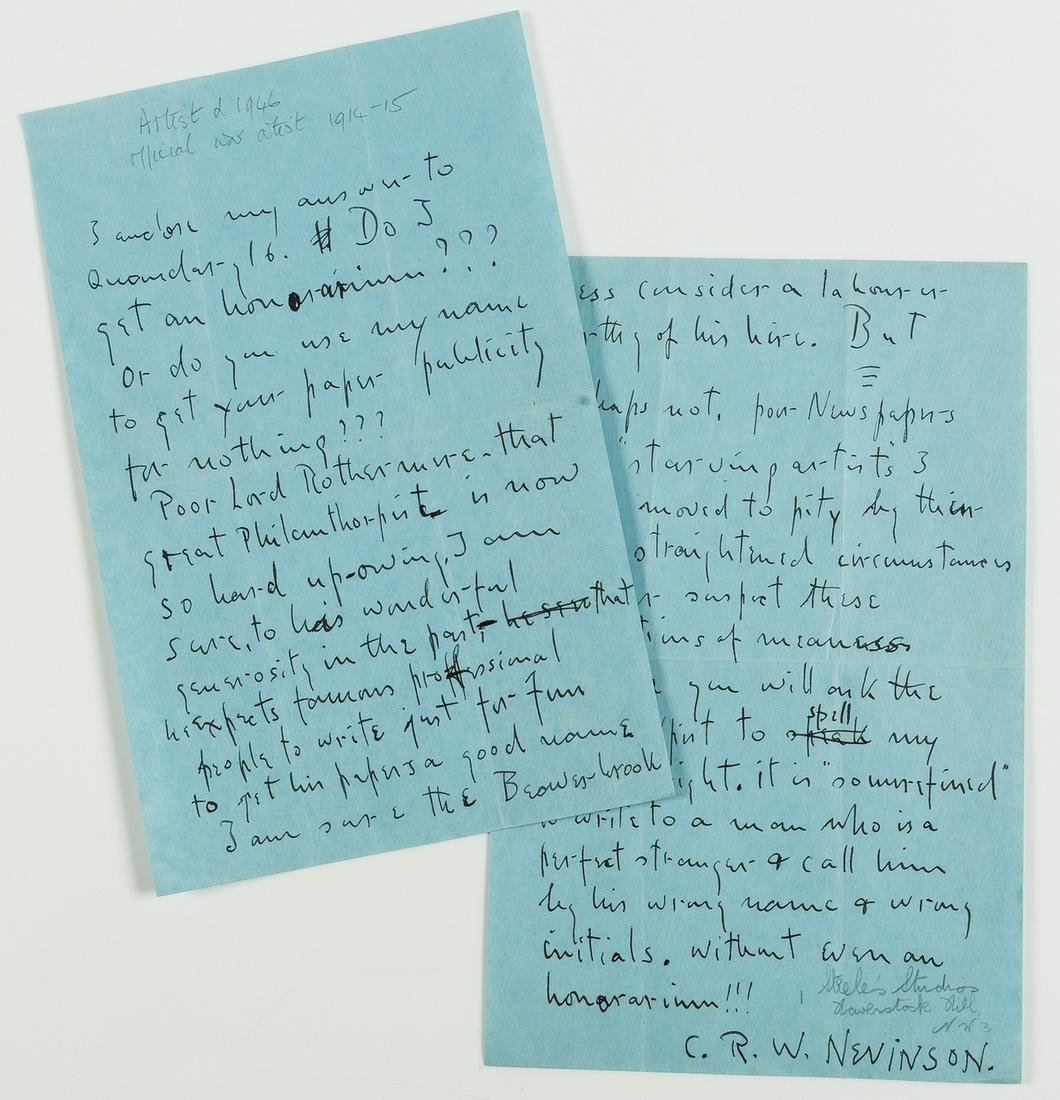 Artist d 1946
official war artist 1914-15
I enclose my answer to
Quandary 16. Do I
get an honorarium???
Or do you use my name
to get your paper publicity
for nothing???
Poor Lord Rothermere. that
great Philanthorpist is now
so hard up-owing, I am
sure, to his wonderful
generosity in the past, that
he expects famous proffessional
people to write just for fun
to get his papers a good name
I am sure the Beaverbrook
ess consider a labourer
rthy of his hire. But
haps not, poor Newspapers
starving artists I
moved to pity by their
straightened circumstances
r suspect these
tims of meaness
you will ask the
pist to spell my
ight. it is "sounrefined"
to write to a man who is a
perfect stranger & call him
by his wrong name & wrong
initials. without even an
honorarium!!!
Steele's Studios
Haverstock Hill
N.W3
C. R. W. NEVINSON.